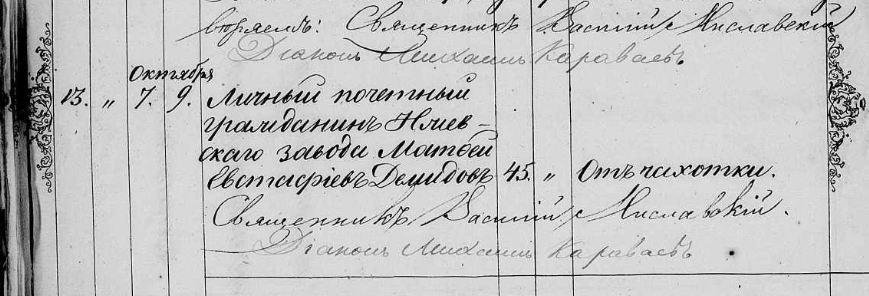 вторяемъ: Священникъ Василій Миславскій
Діаконъ Михаилъ Караваевъ
Октября
13. „ 7. 9. Личный почетный
гражданинъ Ніев-
скаго завода Матѳей
Евстафіевъ Демидовъ 45. „ Отъ чахотки.
Священникъ Василій Миславскій.
Діаконъ Михаилъ Караваевъ